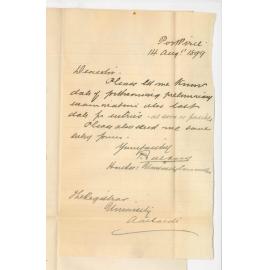 Port Pirie
14 Augt 1899
Dear Sir
Please let me know
date of forthcoming preliminary
examinations also last
date for entries - as soon as possible
Please also send me some
entry forms.
Yours faithfully
The Registrar
University
Adelaide